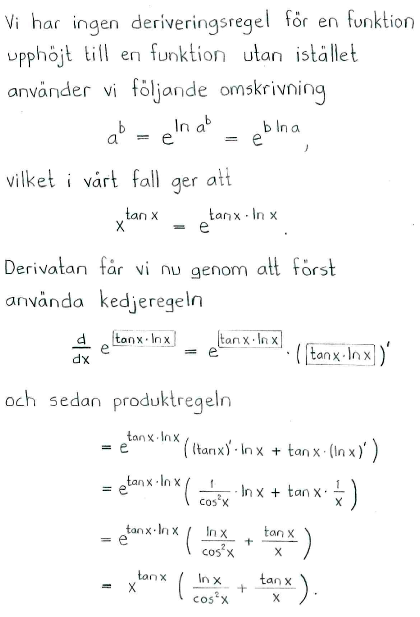 Vi har ingen deriveringsregel för en funktion
upphöjt till en funktion utan istället
använder vi följande omskrivning
a^b = e^{ln a^b} = e^{b ln a},
vilket i vårt fall ger att
x^{tan x} = e^{tan x · ln x}.
Derivatan får vi nu genom att först
använda kedjeregeln
d/dx e^{tan x · ln x} = e^{tan x · ln x} · (tan x · ln x)'
och sedan produktregeln
= e^{tan x · ln x} ((tan x)' · ln x + tan x · (ln x)')
= e^{tan x · ln x} (1/cos²x · ln x + tan x · 1/x)
= e^{tan x · ln x} (ln x/cos²x + tan x/x)
= x^{tan x} (ln x/cos²x + tan x/x).